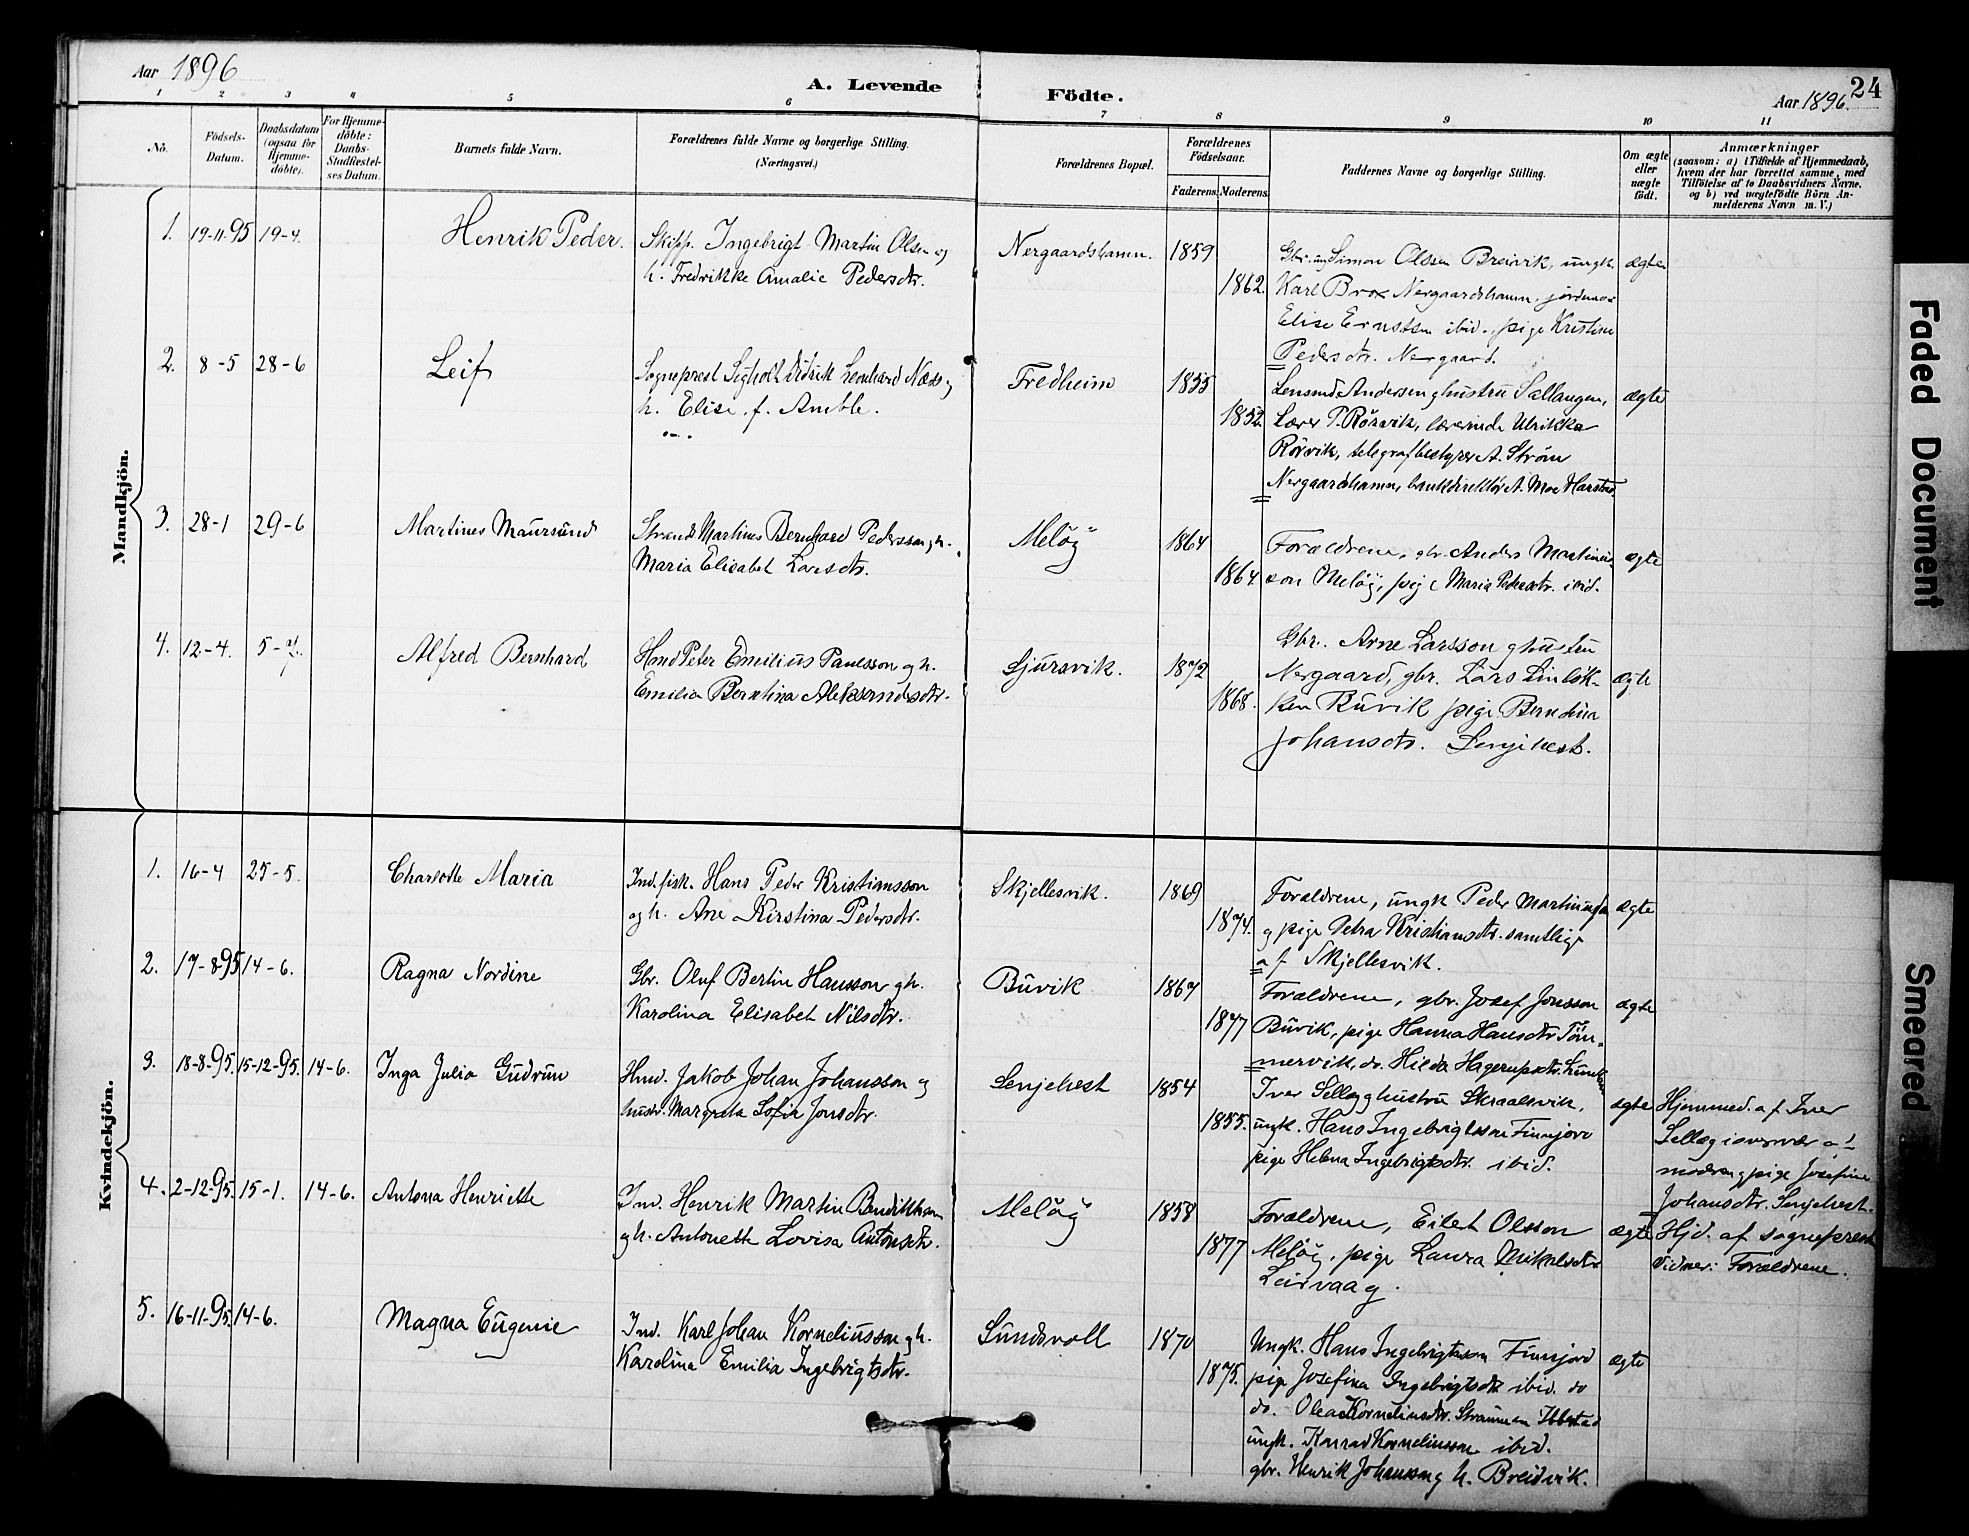 Aar 1896
A. Levende
Födte.
Aar 1896.
24
1 2 3 4 5 6 7 8 9 10 11
No.
Födsels-
Datum.
Daabsdatum
(ogsaa for
Hjemme-
döbte).
For Hjemme-
döbte:
Daabs-
Stadfæstel-
ses Datum.
Barnets fulde Navn.
Forældrenes fulde Navne og borgerlige Stilling.
(Næringsvei.)
Forældrenes Bopæl.
Forældrenes
Födselsaar.
Faderens. Moderens.
Faddernes Navne og borgerlige Stilling.
Om ægte
eller
uægte
födt.
Anmærkninger
(saasom: a) i Tilfælde af Hjemmedaab,
hvem der har forrettet samme, med
Tilföielse af to Daabsvidners Navne.
og b) ved uægtefödte Börn An-
melderens Navn m. V.)
Mandkjön.
1. 19-11-95 19-4 Henrik Peder. Skipp. Ingebrigt Martin Olsen og
h. Fredrikke Amalie Pedersdtr.
Nergaardshamn. 1859
1862.
Simon Olsen Breivik, ungk.
Karl Brox Nergaardshamn, jordmor
Elise Ernstsen ibid., pige Kristine
Pedersdtr. Nergaard.
ægte
2. 8-5 28-6 Leif Sogneprest Sigholt Didrik Leonhard Næss og
h. Elise, f. Amble.
Fredheim 1855
1852.
Lensmd Andersen g hustru Sallangen,
Lærer P. Rörvik, lærerinde Ulrikka
Rörvik, telegrafbestyrer A. Ström
Nergaardshamn, bankdirektör A. Moe Harstad.
ægte
3. 28-1 29-6 Martines Maursund Strands Martines Bernhard Pedersson g h.
Maria Elisabet Larsdtr.
Melöy 1864
1864.
Forældrene, gbr. Anders Martinus-
son Melöy, pige Maria Pedersdtr. ibid.
ægte
4. 12-4. 5-7. Alfred Bernhard Hmd Peter Emilius Paulsson g h.
Emilia Berntina Aleksandersdtr.
Gjursvik. 1872
1868.
Gbr. Arne Larsson g hustru
Nergaard, gbr. Lars Linlök-
ken Buvik pige Berntina
Johansdtr. Senjehest.
ægte
Kvindekjön.
1. 16-4 25-5. Charlotte Maria Ind. fisk. Hans Peder Kristiansson
og h. Ane Kirstina Pedersdtr.
Skjellesvik. 1869
1874.
Forældrene, ungk Peder Martinussen
g pige Petra Kristiansdtr. samtlige
af Skjellesvik.
ægte
2. 17-8-95 14-6. Ragna Nordine Gbr. Oluf Bertin Hansson g h.
Karolina Elisabet Nilsdtr.
Buvik 1867
1877
Forældrene, gbr. Josef Jonsson
Buvik, pige Hanna Hansdtr Töm-
mervik, do. Hilda Hagerupsdtr.
ægte
3. 18-8-95. 15-12-95. 14-6. Inga Julia Gudrun Hmd. Jakob Johan Johansson og
hustr. Margreta Sofia Jonsdtr.
Senjehest 1854
1855.
Iver Sellæg g hustru Skraalsvik,
ungk. Hans Ingebrigtsson Finnjord
pige Helena Ingebrigtsdtr. ibid.
ægte
Hjemmed. af Iver
Sellæg i overvær af
moderen g pige Josefine
Johansdtr. Senjehest.
4. 2-12-95. 15-1. 14-6. Antona Henriette Ind. Henrik Martin Bendiktssen
g h. Antonette Lovisa Antonsdtr.
Melöy 1858
1877
Forældrene, Eilet Olsson
Melöy, pige Laura Mikalsdtr
Leirvaag.
ægte
Hjd. af sogneprest
Vidner: Forældrene.
5. 16-11-95. 14-6. Magna Eugenie Ind. Karl Johan Korneliusson g h.
Karolina Emilia Ingebrigtsdtr.
Sundsvoll 1870
1875.
Ungk. Hans Ingebrigtsson Finnjord
pige Josefina Ingebrigtsdtr ibid. do
do. Olea Korneliusdtr. Straumen Ibbestad
ungk. Konrad Korneliusson ibid.
gbr. Henrik Johansson g h. Breidvik.
ægte
Faded Document
Smeared